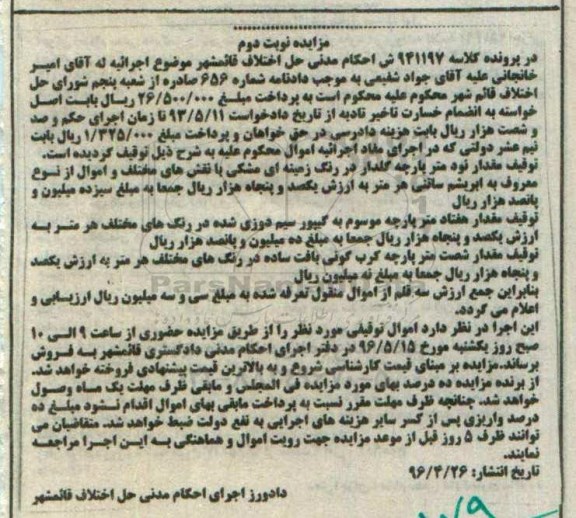 مزایده نوبت دوم
در پرونده کلاسه ۹۴۱۱۹۷ ش احکام مدنی حل اختلاف قائمشهر موضوع اجرائیه له آقای امیر
خانجانی علیه آقای جواد شفیعی به موجب دادنامه شماره ۶۵۶ صادره از شعبه پنجم شورای حل
اختلاف قائم شهر محکوم علیه محکوم است به پرداخت مبلغ ۲۶/۵۰۰/۰۰۰ ریال بابت اصل
خواسته به انضمام خسارت تاخیر تادیه از تاریخ دادخواست ۹۳/۵/۱۱ تا زمان اجرای حکم و صد
و شصت هزار ریال بابت هزینه دادرسی در حق خواهان و پرداخت مبلغ ۱/۳۲۵/۰۰۰ ریال بابت
نیم عشر دولتی که در اجرای مفاد اجرائیه اموال محکوم علیه به شرح ذیل توقیف گردیده است.
توقیف مقدار نود متر پارچه گلدار در رنگ زمینه ای مشکی با نقش های مختلف و اموال از نوع
معروف به ابریشم ساتنی هر متر به ارزش یکصد و پنجاه هزار ریال جمعا به مبلغ سیزده میلیون و
پانصد هزار ریال
توقیف مقدار هفتاد متر پارچه موسوم به گیپور سیم دوزی شده در رنگ های مختلف هر متر به
ارزش یکصد و پنجاه هزار ریال جمعا به مبلغ ده میلیون و پانصد هزار ریال
توقیف مقدار شصت متر پارچه کرب گونی بافت ساده در رنگ های مختلف هر متر به ارزش یکصد
و پنجاه هزار ریال جمعا به مبلغ نه میلیون ریال
بنابراین جمع ارزش سه قلم از اموال منقول تعرفه شده به مبلغ سی و سه میلیون ریال ارزیابی و
اعلام می گردد.
این اجرا در نظر دارد اموال توقیفی مورد نظر را از طریق مزایده حضوری از ساعت ۹ الی ۱۰
صبح روز یکشنبه مورخ ۹۶/۵/۱۵ در دفتر اجرای احکام مدنی دادگستری قائمشهر به فروش
برساند.مزایده بر مبنای قیمت کارشناسی شروع و به بالاترین قیمت پیشنهادی فروخته خواهد شد.
از برنده مزایده ده درصد بهای مورد مزایده فی المجلس و مابقی ظرف مهلت یک ماه وصول
خواهد شد. چنانچه ظرف مهلت مقرر نسبت به پرداخت مابقی بهای اموال اقدام نشود مبلغ ده
درصد واریزی پس از کسر سایر هزینه های اجرایی به نفع دولت ضبط خواهد شد. متقاضیان می
توانند ظرف ۵ روز قبل از موعد مزایده جهت رویت اموال و هماهنگی به این اجرا مراجعه
نمایند.
تاریخ انتشار: ۹۶/۴/۲۶
دادورز اجرای احکام مدنی حل اختلاف قائمشهر